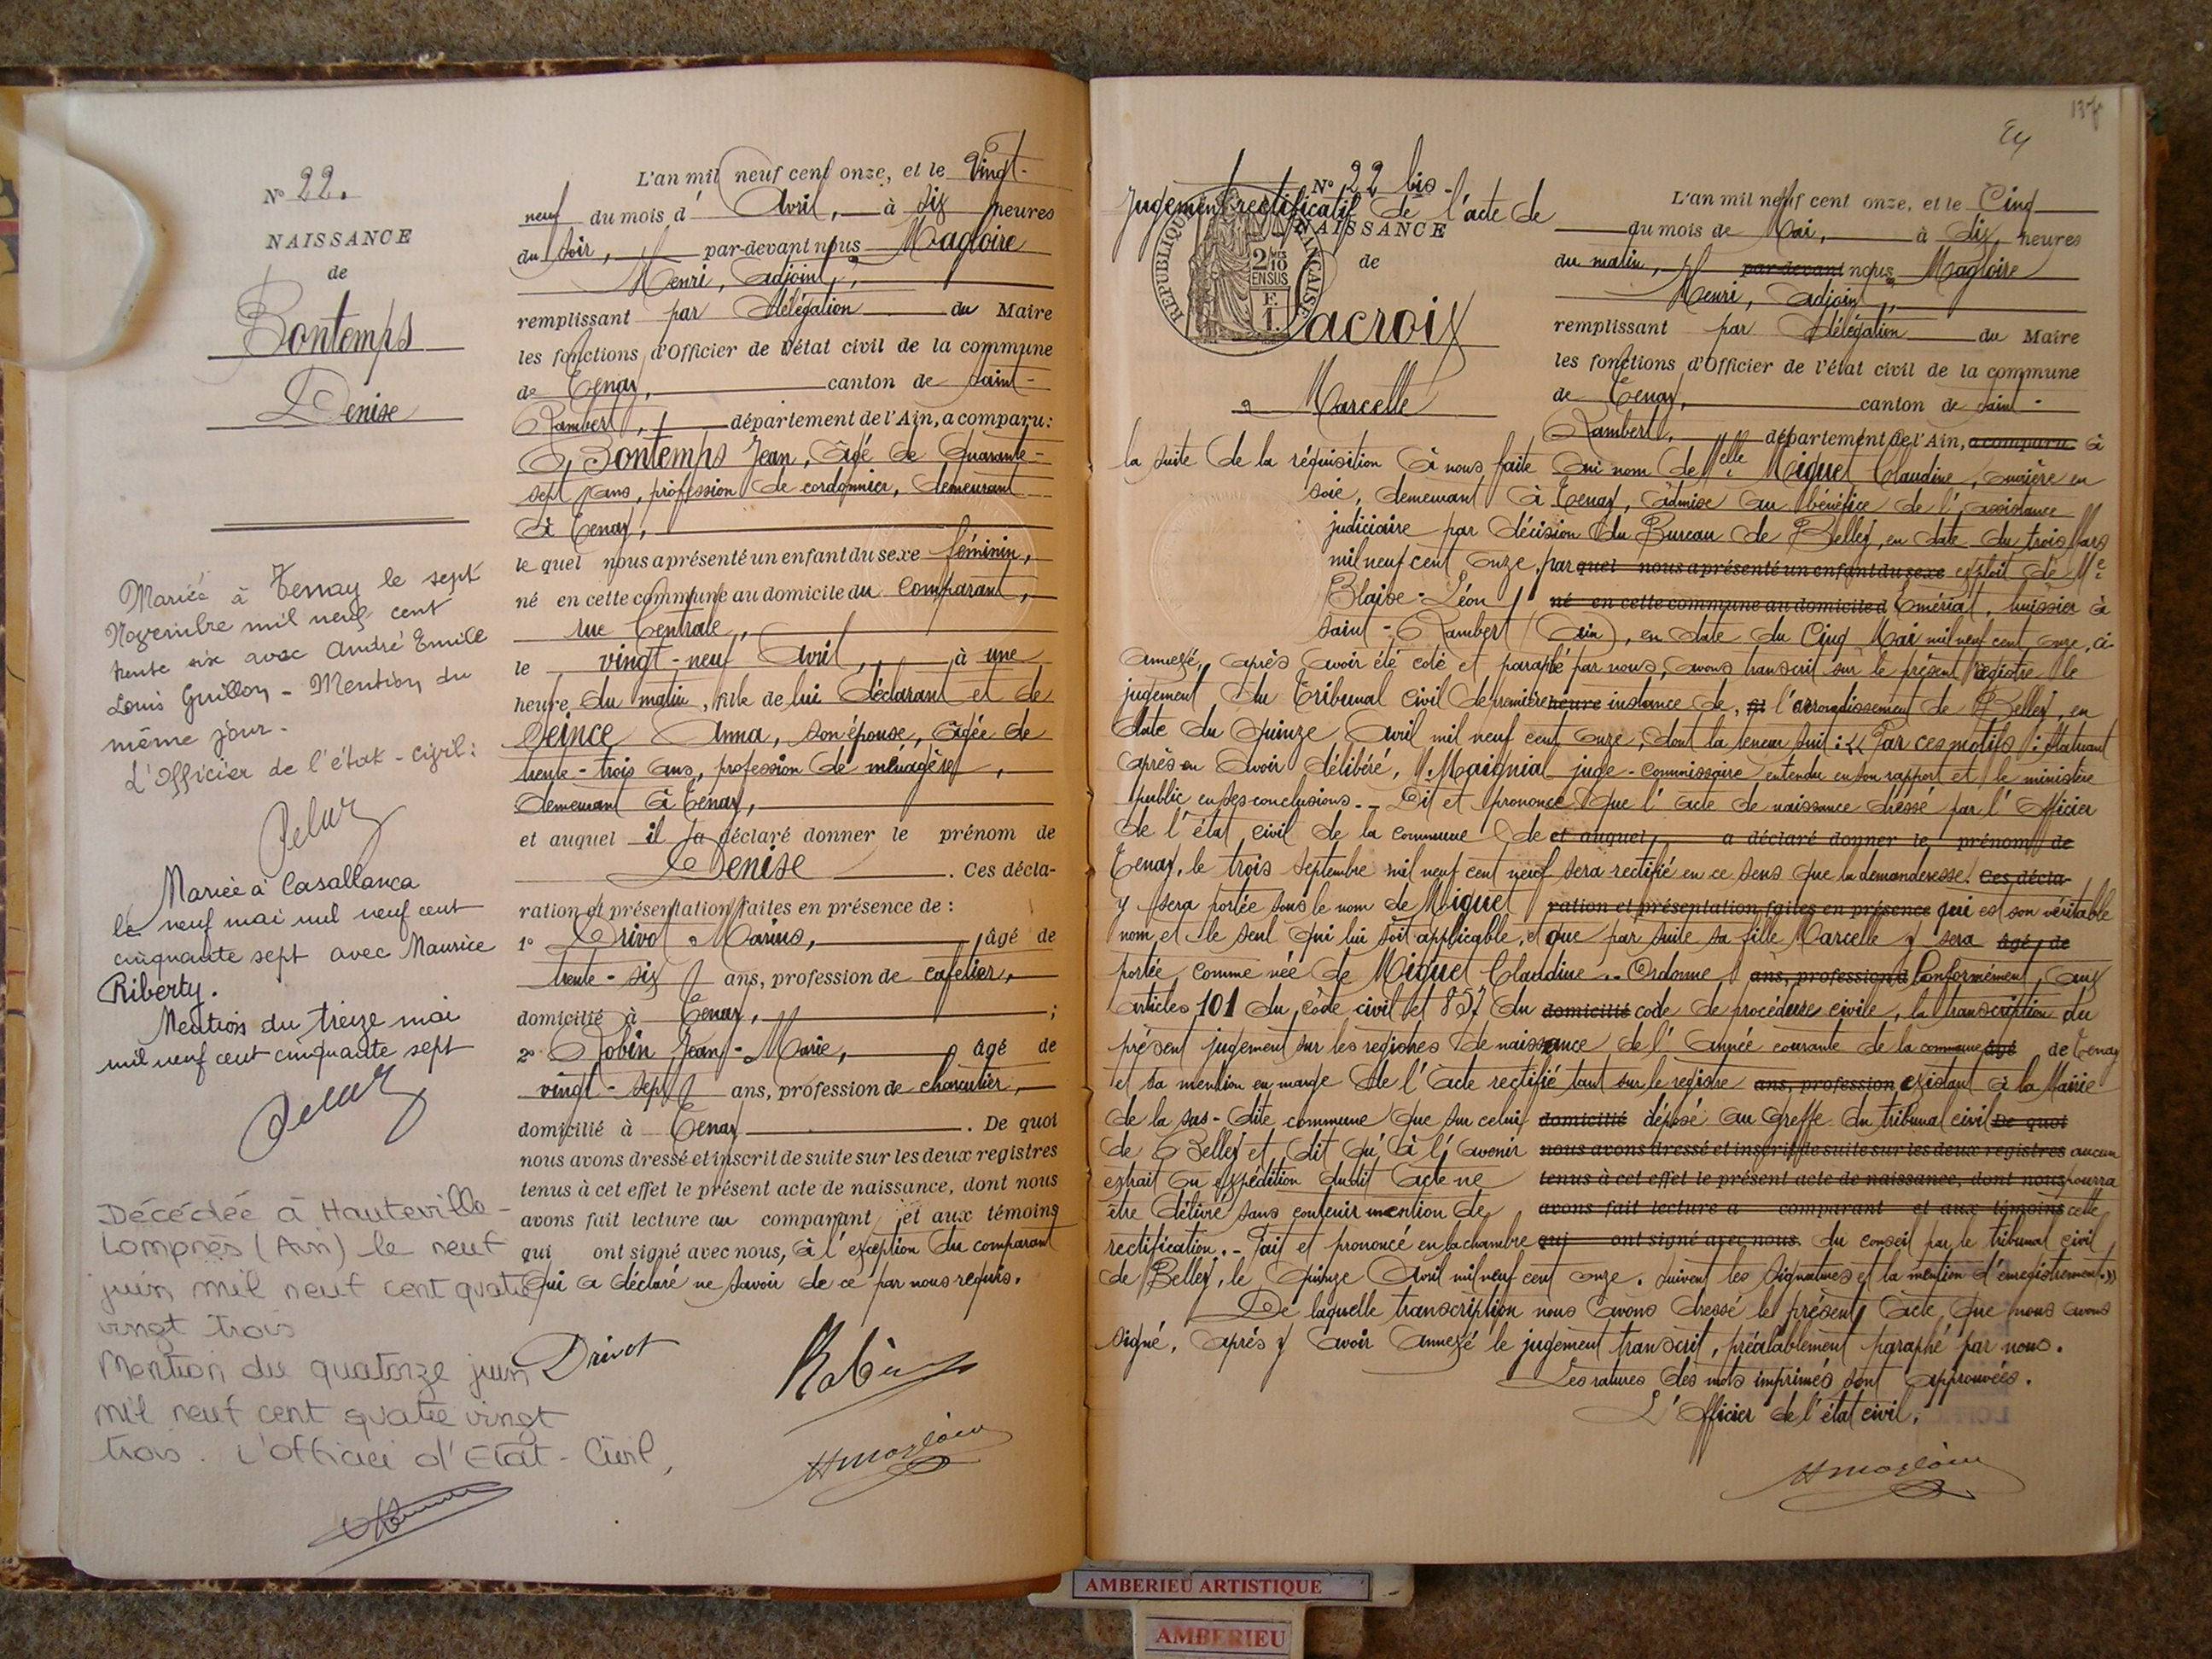 N° 22.
NAISSANCE
de
Bontemps
Denise
Mariée à Tenay le sept
Novembre mil neuf cent
trente six avec André Emile
Louis Guillon - Mention du
même jour.
L'Officier de l'état-civil:
Mariée à Casablanca
le neuf mai mil neuf cent
cinquante sept avec Maurice
Riberty.
Mention du treize mai
mil neuf cent cinquante sept
Décédée à Hauteville-
Lompnès (Ain) le neuf
juin mil neuf cent quatre
vingt trois
Mention du quatorze juin
mil neuf cent quatre vingt
trois. L'officier d'Etat-Civil,
L'an mil neuf cent onze, et le Vingt-
neuf du mois d'Avril, à six heures
du soir, par-devant nous Magloire
Henri, adjoint,
remplissant par délégation du Maire
les fonctions d'Officier de l'état civil de la commune
de Tenay, canton de Saint-
Rambert, département de l'Ain, a comparu:
Bontemps Jean, âgé de quarante-
sept ans, profession de cordonnier, demeurant
à Tenay,
le quel nous a présenté un enfant du sexe féminin,
né en cette commune au domicile du comparant,
rue Centrale,
le vingt-neuf avril, à une
heure du matin, fille de lui déclarant et de
Seince Anna, son épouse, âgée de
trente-trois ans, profession de ménagère,
demeurant à Tenay,
et auquel il a déclaré donner le prénom de
Denise. Ces décla-
ration et présentation faites en présence de :
1° Drivot Marius, âgé de
trente-six ans, profession de cafetier,
domicilié à Tenay, ;
2° Robin Jean-Marie, âgé de
vingt-sept ans, profession de charcutier,
domicilié à Tenay. De quoi
nous avons dressé et inscrit de suite sur les deux registres
tenus à cet effet le présent acte de naissance, dont nous
avons fait lecture au comparant et aux témoins
qui ont signé avec nous, à l'exception du comparant
qui a déclaré ne savoir de ce par nous requis.
Drivot
Robin
HMagloire
137
24
N° 22 bis
Jugement rectificatif de l'acte de
NAISSANCE
de
REPUBLIQUE FRANÇAISE
2 MES 10
EN SUS
F.
1.
Lacroix
Marcelle
L'an mil neuf cent onze, et le Cinq
du mois de Mai, à dix heures
du matin, par-devant nous Magloire
Henri, adjoint,
remplissant par délégation du Maire
les fonctions d'Officier de l'état civil de la commune
de Tenay, canton de Saint-
Rambert, département de l'Ain, a comparu à
la suite de la réquisition à nous faite au nom de Melle Miguet Claudine, ouvrière en
soie, demeurant à Tenay, admise au bénéfice de l'assistance
judiciaire par décision du Bureau de Belley, en date du trois Mars
mil neuf cent onze, par quel nous a présenté un enfant du sexe exploit de Me
Blaise-Léon né en cette commune au domicile d huissier à
Saint-Rambert (Ain), en date du Cinq Mai mil neuf cent onze, ci-
annexé, après avoir été coté et paraphé par nous, avons transcrit sur le présent registre le
jugement du Tribunal civil de première heure instance de l'arrondissement de Belley, en
date du quinze avril mil neuf cent onze, dont la teneur suit : « Par ces motifs : statuant
après en avoir délibéré, M. Maignial juge-commissaire entendu en son rapport et le ministère
public en ses conclusions. - Dit et prononce que l'acte de naissance dressé par l'officier
de l'état civil de la commune de et auquel a déclaré donner le prénom de
Tenay, le trois septembre mil neuf cent neuf sera rectifié en ce sens que la demanderesse Ces décla-
y sera portée sous le nom de Miguet ration et présentation faites en présence qui est son véritable
nom et le seul qui lui soit applicable, et que par suite sa fille Marcelle y sera âgé de
portée comme née de Miguet Claudine. - Ordonne ans, profession d Conformément aux
articles 101 du code civil et 857 du domicilié code de procédure civile, la transcription du
présent jugement sur les registres de naissance de l'année courante de la commune âgé de Tenay
et sa mention en marge de l'acte rectifié tant sur le registre ans, profession existant à la Mairie
de la sus-dite commune que sur celui domicilié déposé au greffe du tribunal civil De quoi
de Belley et dit qu'à l'avenir nous avons dressé et inscrit de suite sur les deux registres aucun
extrait ou expédition dudit acte ne tenus à cet effet le présent acte de naissance, dont nous pourra
être délivré sans contenir mention de avons fait lecture a comparant et aux témoins cette
rectification. - Fait et prononcé en la chambre qui ont signé avec nous. du conseil par le tribunal civil
de Belley, le quinze avril mil neuf cent onze. Suivent les signatures et la mention d'enregistrement »
De laquelle transcription nous avons dressé le présent acte, que nous avons
signé, après y avoir annexé le jugement transcrit, préalablement paraphé par nous.
Les ratures des mots imprimés sont approuvées.
L'officier de l'état civil,
HMagloire
AMBERIEU ARTISTIQUE
AMBERIEU